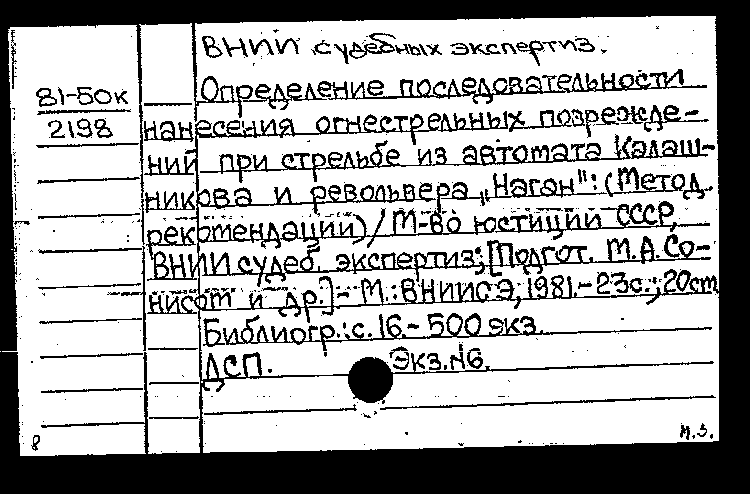 ВНИИ судебных экспертиз.
81-50к
2198
Определение последовательности
нанесения огнестрельных поврежде-
ний при стрельбе из автомата Калаш-
никова и револьвера „Наган": (Метод.
рекомендации) / М-во юстиции СССР,
ВНИИ судеб. экспертиз; [Подгот. М.А.Со-
нисот и др.]- М.: ВНИИСЭ, 1981.- 23с.; 20см
Библиогр.: с. 16.- 500 экз.
ДСП. Экз.№6.
8